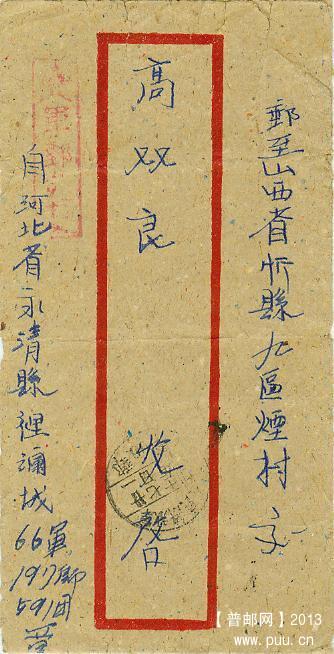 郵至山西省忻縣九區煙村交
高双良
啓
軍郵
自河北省永清縣裡瀾城
66軍
197師
591团
【普邮网】2013
www.puu.cn